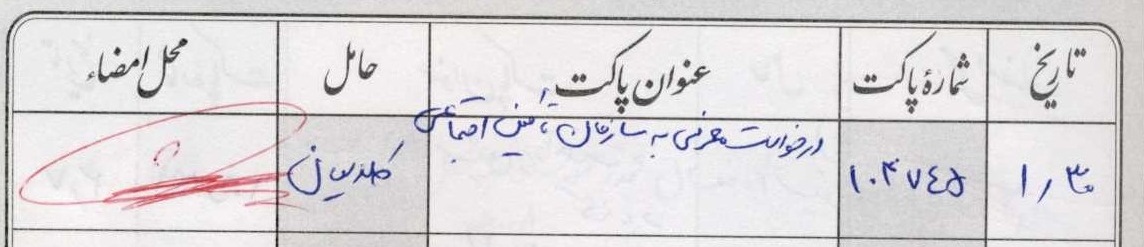 تاریخ شمارهٔ پاکت عنوان پاکت حامل محل امضاء
۱٫۳۰ ۱۰۴۷۴۵ درخواست معرفی به سازمان تأمین اجتماعی